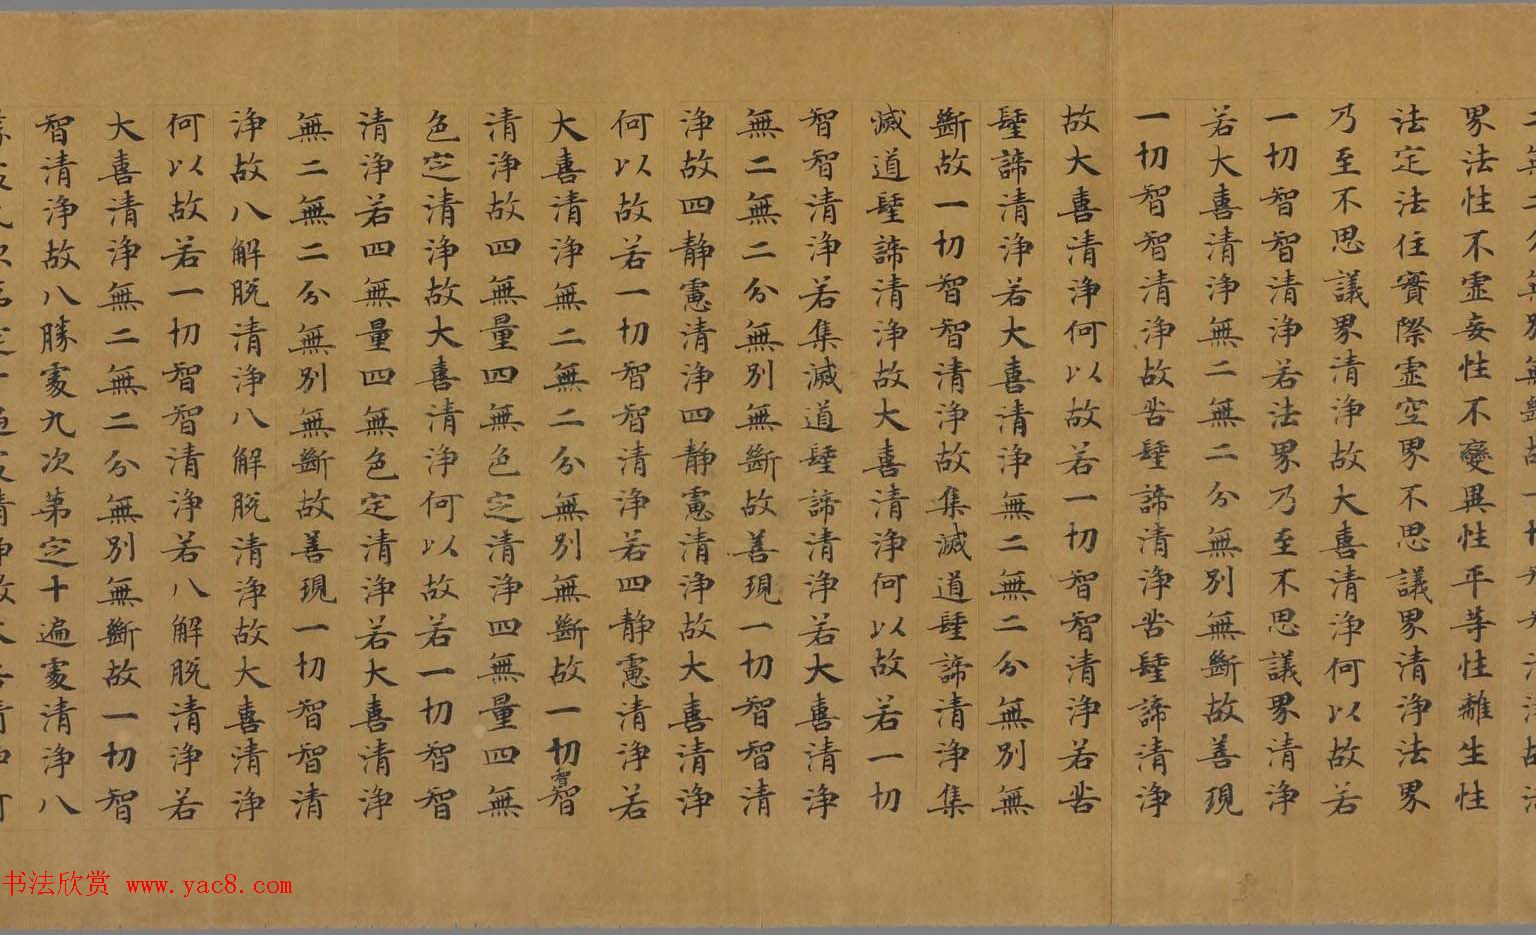 界法性不虛妄性不變異性平等性離生性
法定法住實際虛空界不思議界清淨法界
乃至不思議界清淨故大喜清淨何以故若
一切智智清淨若法界乃至不思議界清淨
若大喜清淨無二無二分無別無斷故善現
一切智智清淨故苦聖諦清淨苦聖諦清淨
故大喜清淨何以故若一切智智清淨若苦
聖諦清淨若大喜清淨無二無二分無別無
斷故一切智智清淨故集滅道聖諦清淨集
滅道聖諦清淨故大喜清淨何以故若一切
智智清淨若集滅道聖諦清淨若大喜清淨
無二無二分無別無斷故善現一切智智清
淨故四靜慮清淨四靜慮清淨故大喜清淨
何以故若一切智智清淨若四靜慮清淨若
大喜清淨無二無二分無別無斷故一切智智
清淨故四無量四無色定清淨四無量四無
色定清淨故大喜清淨何以故若一切智智
清淨若四無量四無色定清淨若大喜清淨
無二無二分無別無斷故善現一切智智清
淨故八解脫清淨八解脫清淨故大喜清淨
何以故若一切智智清淨若八解脫清淨若
大喜清淨無二無二分無別無斷故一切智
智清淨故八勝處九次第定十遍處清淨八
书法欣赏 www.yac8.com